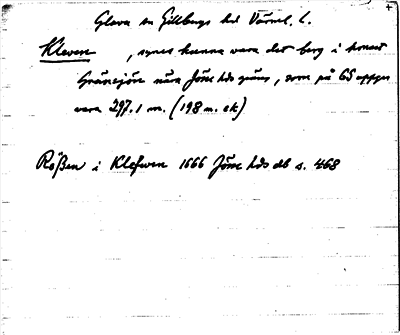 Glava sn Gillbergs hd Värml. l.
Kleven , synes kunna vara det berg i
Gränsjön nära Jösse hds gräns, som på GS uppges
vara 297.1 m. (198 m. ek)
Rößen i Klefwen 1666 Jösse hds db s. 468